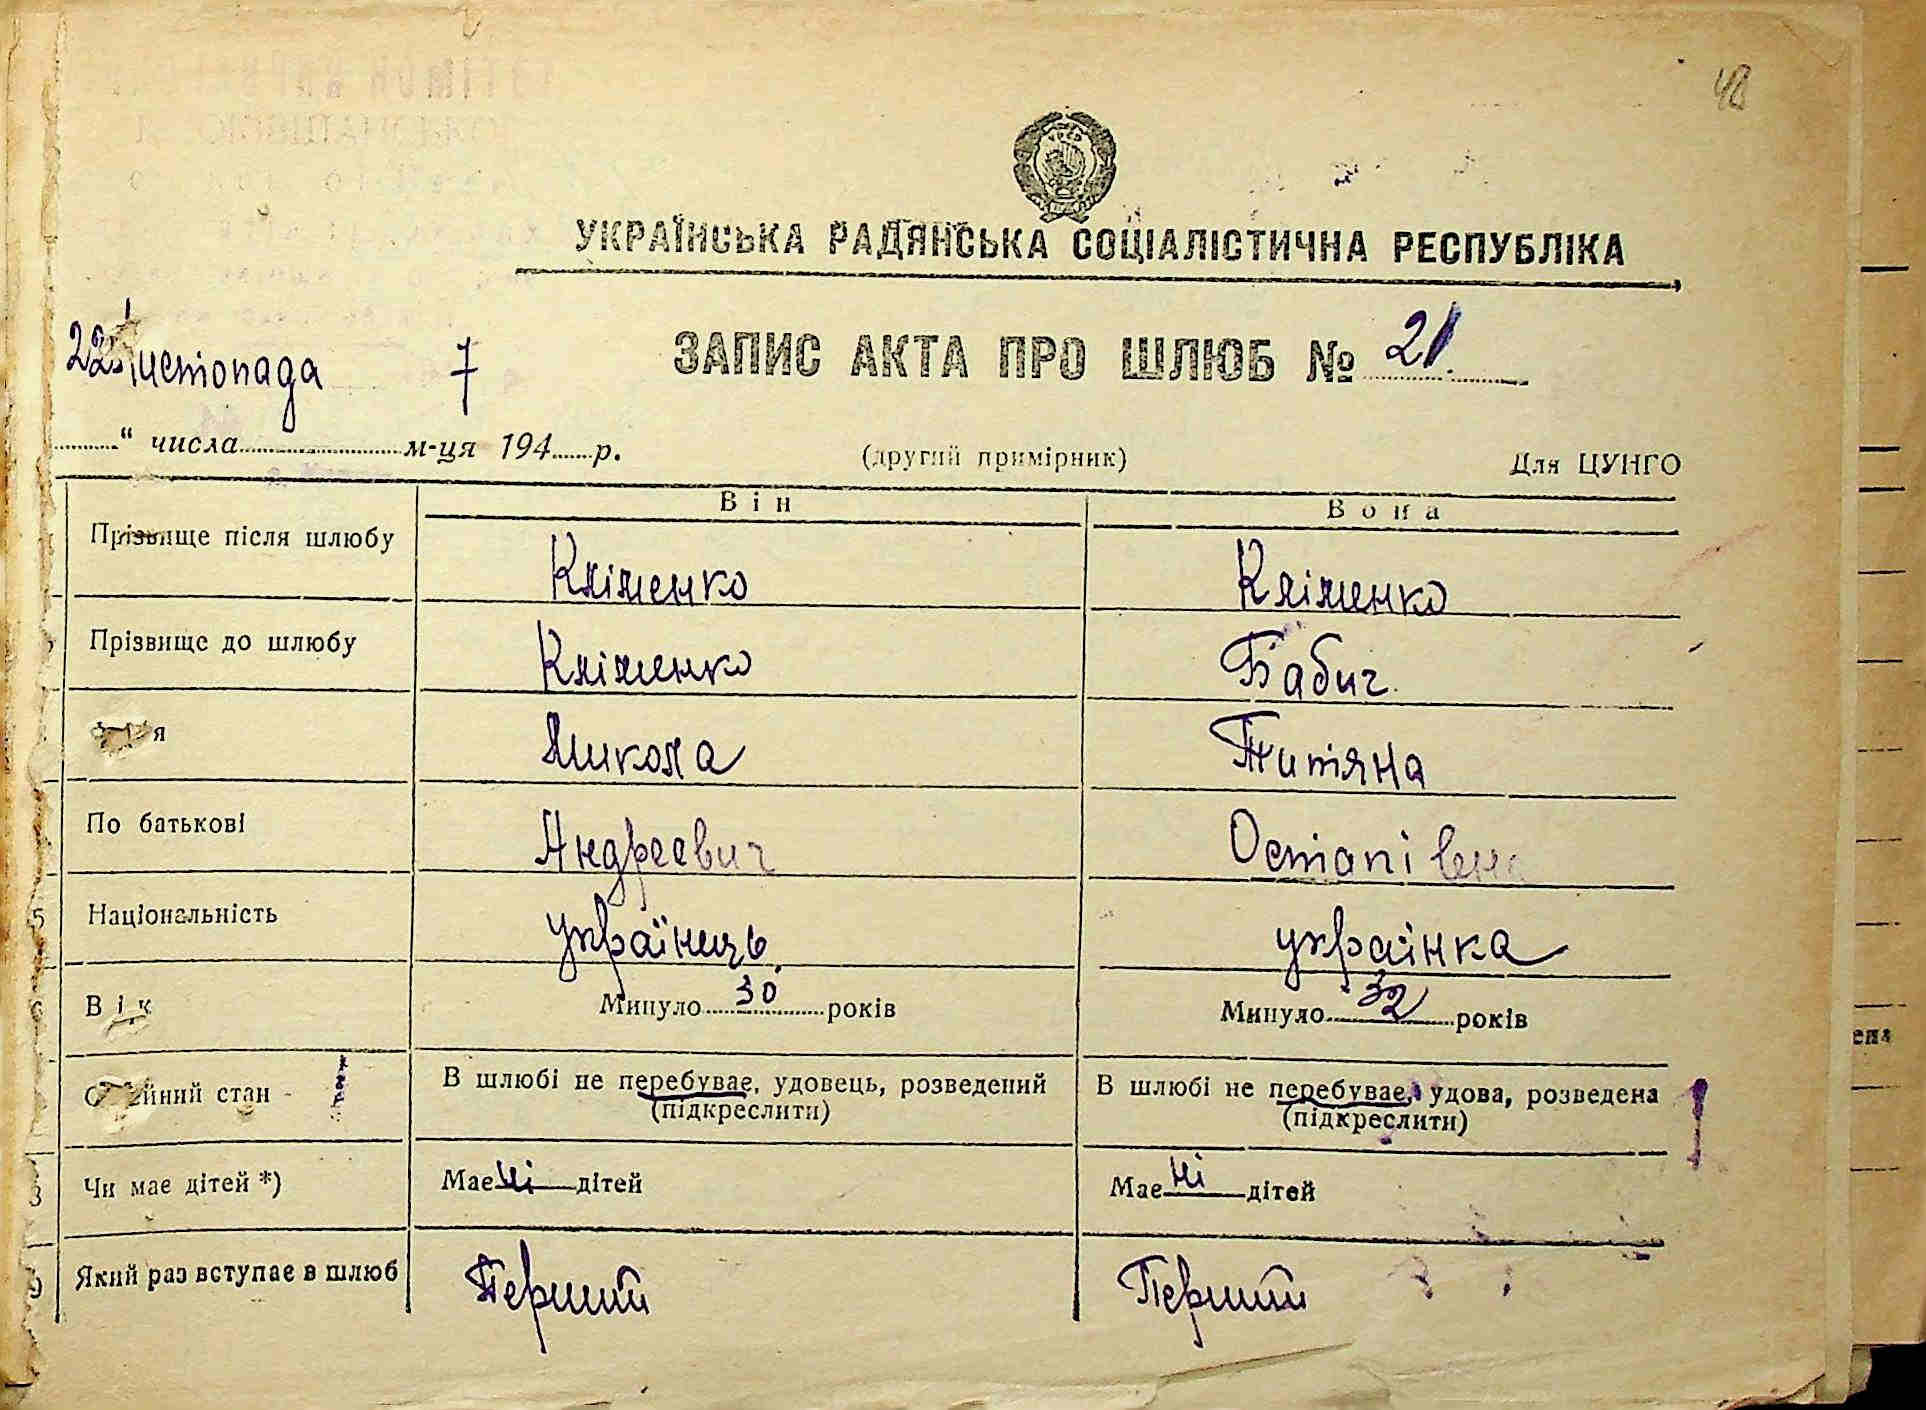 48
УКРАЇНСЬКА РАДЯНСЬКА СОЦІАЛІСТИЧНА РЕСПУБЛІКА
ЗАПИС АКТА ПРО ШЛЮБ № 21.
22 листопада 7
" числа м-ця 194 р.
(другий примірник)
Для ЦУНГО
Він Вона
Прізвище після шлюбу Кліменко Кліменко
Прізвище до шлюбу Кліменко Бабич
я Микола Титяна
По батькові Андреевич Остапівна
5 Національність українець українка
6 Вік Минуло 30 років Минуло 32 років
йний стан В шлюбі не перебуває, удовець, розведений В шлюбі не перебуває, удова, розведена
(підкреслити) (підкреслити)
8 Чи має дітей *) Має ні дітей Має ні дітей
9 Який раз вступає в шлюб Перший Перший